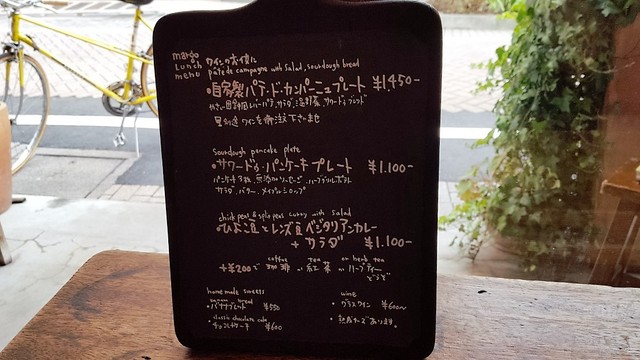 margo
Lunch
menu
ワインのお供に
pâté de campagne with salad, sourdough bread
・自家製パテ・ド・カンパーニュプレート ¥1,450-
サラダ
※別途ワインを御注文下さいませ
sourdough pancake plate
・サワードゥ・パンケーキプレート ¥1.100-
パンケーキ3枚、無添加ソーセージ、ハーブグリルポテト
サラダ、バター、メイプルシロップ
chick peas & split peas curry with salad
・ひよこ豆とレンズ豆ベジタリアンカレー
+ サラダ ¥1.100-
coffee tea or herb tea
+¥200で 珈琲 紅茶 ハーブティー
どうぞ
home made sweets
banana bread
・バナナブレッド ¥550
classic chocolate cake
・チョコレートケーキ ¥600
wine
・グラスワイン ¥600〜
・熟成チーズあります。